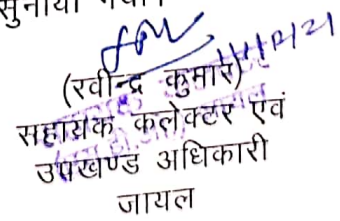 सुनाया गया।
(रवीन्द्र कुमार)
सहायक कलेक्टर एवं
उपखण्ड अधिकारी
जायल